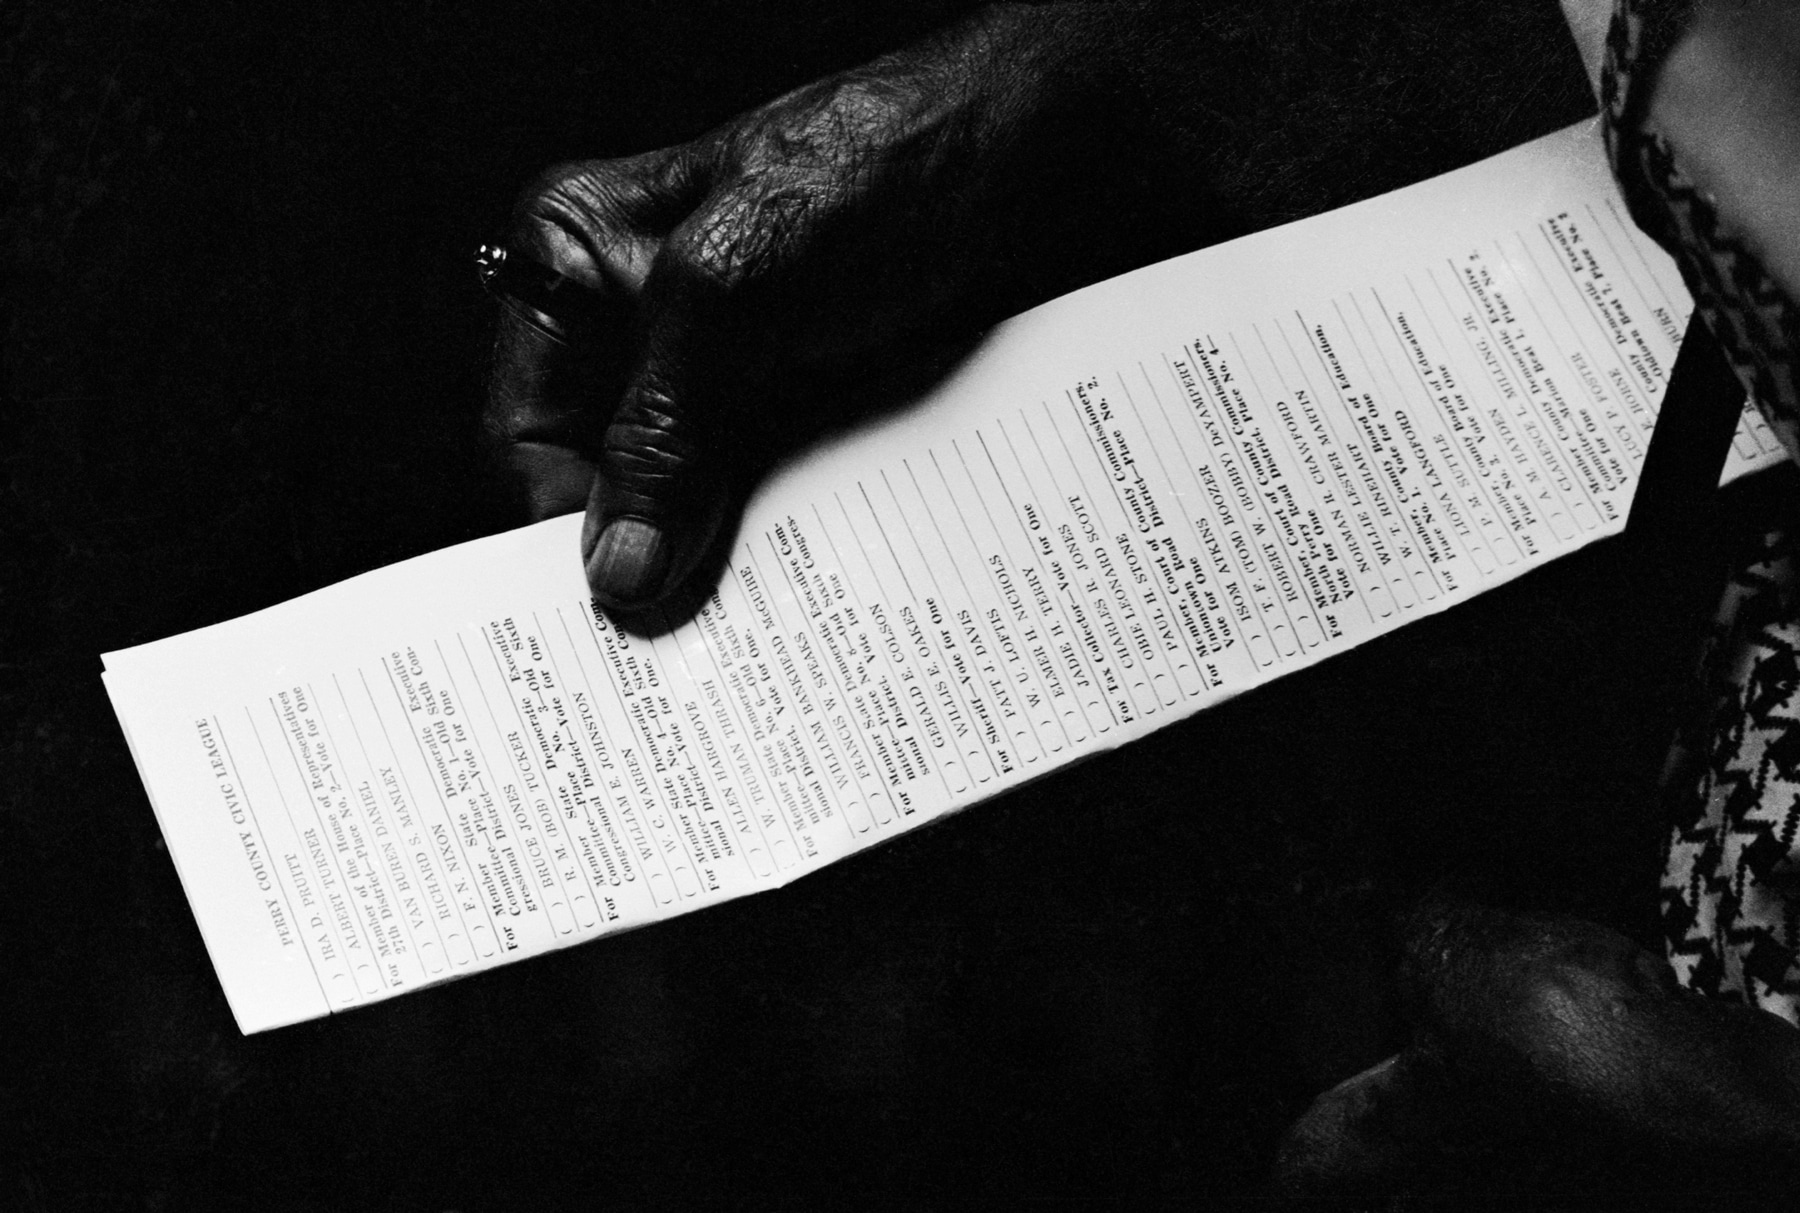 PERRY COUNTY CIVIC LEAGUE
( ) IRA D. PRUITT
( ) ALBERT TURNER
For Member of the House of Representatives
27th District—Place No. 2—Vote for One
( ) VAN BUREN DANIEL
( ) RICHARD S. MANLEY
( ) F. N. NIXON
For Member State Democratic Executive
Committee—Place No. 1—Old Sixth Con-
gressional District Vote for One
( ) BRUCE JONES
( ) R. M. (BOB) TUCKER
For Member State Democratic Executive
Committee—Place No. 3—Old Sixth
Congressional District—Vote for One
( ) WILLIAM E. JOHNSTON
( ) W. C. WARREN
For Member State Democratic Executive Com-
mittee—Place No. 4—Old Sixth Congres-
sional District—Vote for One.
( ) ALLEN HARGROVE
( ) W. TRUMAN THRASH
For Member State Democratic Executive Com-
mittee—Place No. 6—Old Sixth
sional District, Vote for One.
( ) WILLIAM BANKHEAD McGUIRE
( ) FRANCIS W. SPEAKS
For Member State Democratic Executive Com-
mittee—Place No. 8—Old Sixth Congres-
sional District, Vote for One
( ) GERALD E. COLSON
( ) WILLIS E. OAKES
For Sheriff—Vote for One
( ) PATT J. DAVIS
( ) W. U. LOFTIS
( ) ELMER H. NICHOLS
( ) JADIE H. TERRY
For Tax Collector—Vote for One
( ) CHARLES R. JONES
( ) OBIE LEONARD SCOTT
( ) PAUL H. STONE
For Member, Court of County Commissioners,
Uniontown Road District—Place No. 2,
Vote for One
( ) ISOM ATKINS
( ) T. F. (TOM) BOZER
( ) ROBERT W. (BOBBY) DEVAMPERT
For Member, Court of County Commissioners,
North Perry Road District, Place No. 4
Vote for One
( ) NORMAN R. CRAWFORD
( ) WILLIE LESTER MARTIN
( ) W. T. RINEHART
For Member, County Board of Education,
Place No. 1, Vote for One
( ) LIONA LANGFORD
( ) P. M. SUTTLE
For Member, County Board of Education,
Place No. 2, Vote for One
( ) A. M. HAYDEN
( ) CLARENCE L. MILLING, JR.
For Member County Democratic Executive
Committee—Marion Beat 1, Place No. 2,
Vote for One
( ) LUCY P. FOSTER
E. HORNE
County Democratic Executive
Beat 7, Place No.
BURN